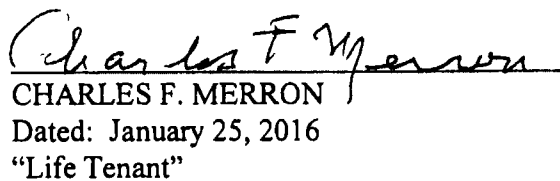 Charles F Merron
CHARLES F. MERRON
Dated: January 25, 2016
“Life Tenant”